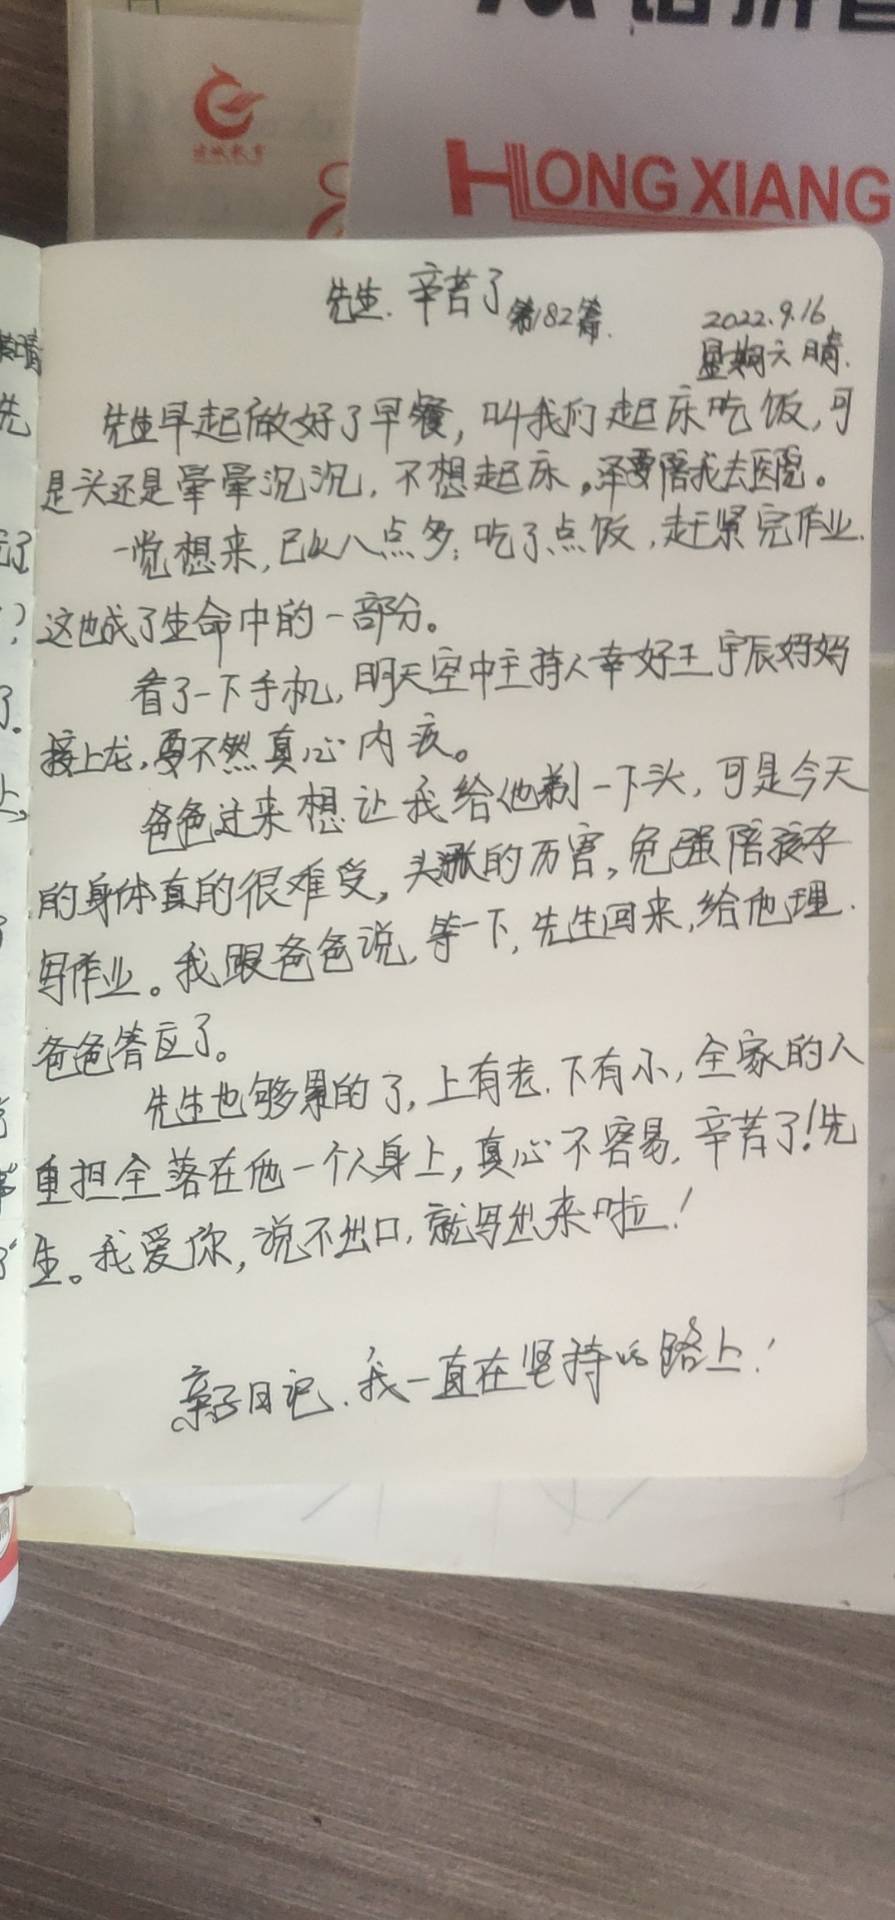 HONG XIANG
先生.辛苦了 第182篇.
2022.9.16
星期六 晴.
先生早起做好了早餐,叫我们起床吃饭,可
是头还是晕晕沉沉,不想起床。泽要陪我去医院。
一觉想来,已经八点多;吃了点饭,赶紧完作业.
这也成了生命中的一部分。
看了一下手机,明天空中主持人幸好王宇辰妈妈
接上龙,要不然真心内疚。
爸爸过来想让我给他剃一下头,可是今天
的身体真的很难受,头涨的厉害,免强陪孩子
写作业。我跟爸爸说,等一下,先生回来,给他理.
爸爸答应了。
先生也够累的了,上有老.下有小,全家的人
重担全落在他一个人身上,真心不容易,辛苦了!先
生。我爱你,说不出口,就写出来啦!
亲子日记.我一直在坚持的路上!